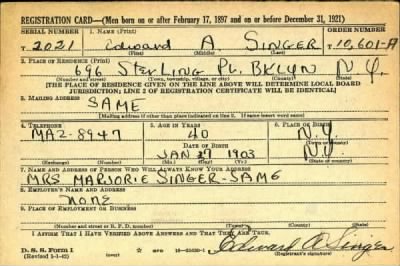 REGISTRATION CARD—(Men born on or after February 17, 1897 and on or before December 31, 1921)
SERIAL NUMBER 1. NAME (Print) ORDER NUMBER
T 2021 Edward A SINGER T 10,601-A
(First) (Middle) (Last)
2. PLACE OF RESIDENCE (Print)
696 STERLING PL. BKLYN N Y.
(Number and street) (Town, township, village, or city) (County) (State)
[THE PLACE OF RESIDENCE GIVEN ON THE LINE ABOVE WILL DETERMINE LOCAL BOARD
JURISDICTION; LINE 2 OF REGISTRATION CERTIFICATE WILL BE IDENTICAL]
3. MAILING ADDRESS
SAME
[Mailing address if other than place indicated on line 2. If same insert word same]
4. TELEPHONE 5. AGE IN YEARS 6. PLACE OF BIRTH
MA2-8947 40 N.Y.
DATE OF BIRTH (Town or county)
JAN 27 1903 N.Y
(Exchange) (Number) (Mo.) (Day) (Yr.) (State or country)
7. NAME AND ADDRESS OF PERSON WHO WILL ALWAYS KNOW YOUR ADDRESS
MRS MARJORIE SINGER-SAME
8. EMPLOYER'S NAME AND ADDRESS
NONE
9. PLACE OF EMPLOYMENT OR BUSINESS
(Number and street or R. F. D. number) (Town) (County) (State)
I AFFIRM THAT I HAVE VERIFIED ABOVE ANSWERS AND THAT THEY ARE TRUE.
D. S. S. Form 1
Edward A Singer
(Registrant's signature)